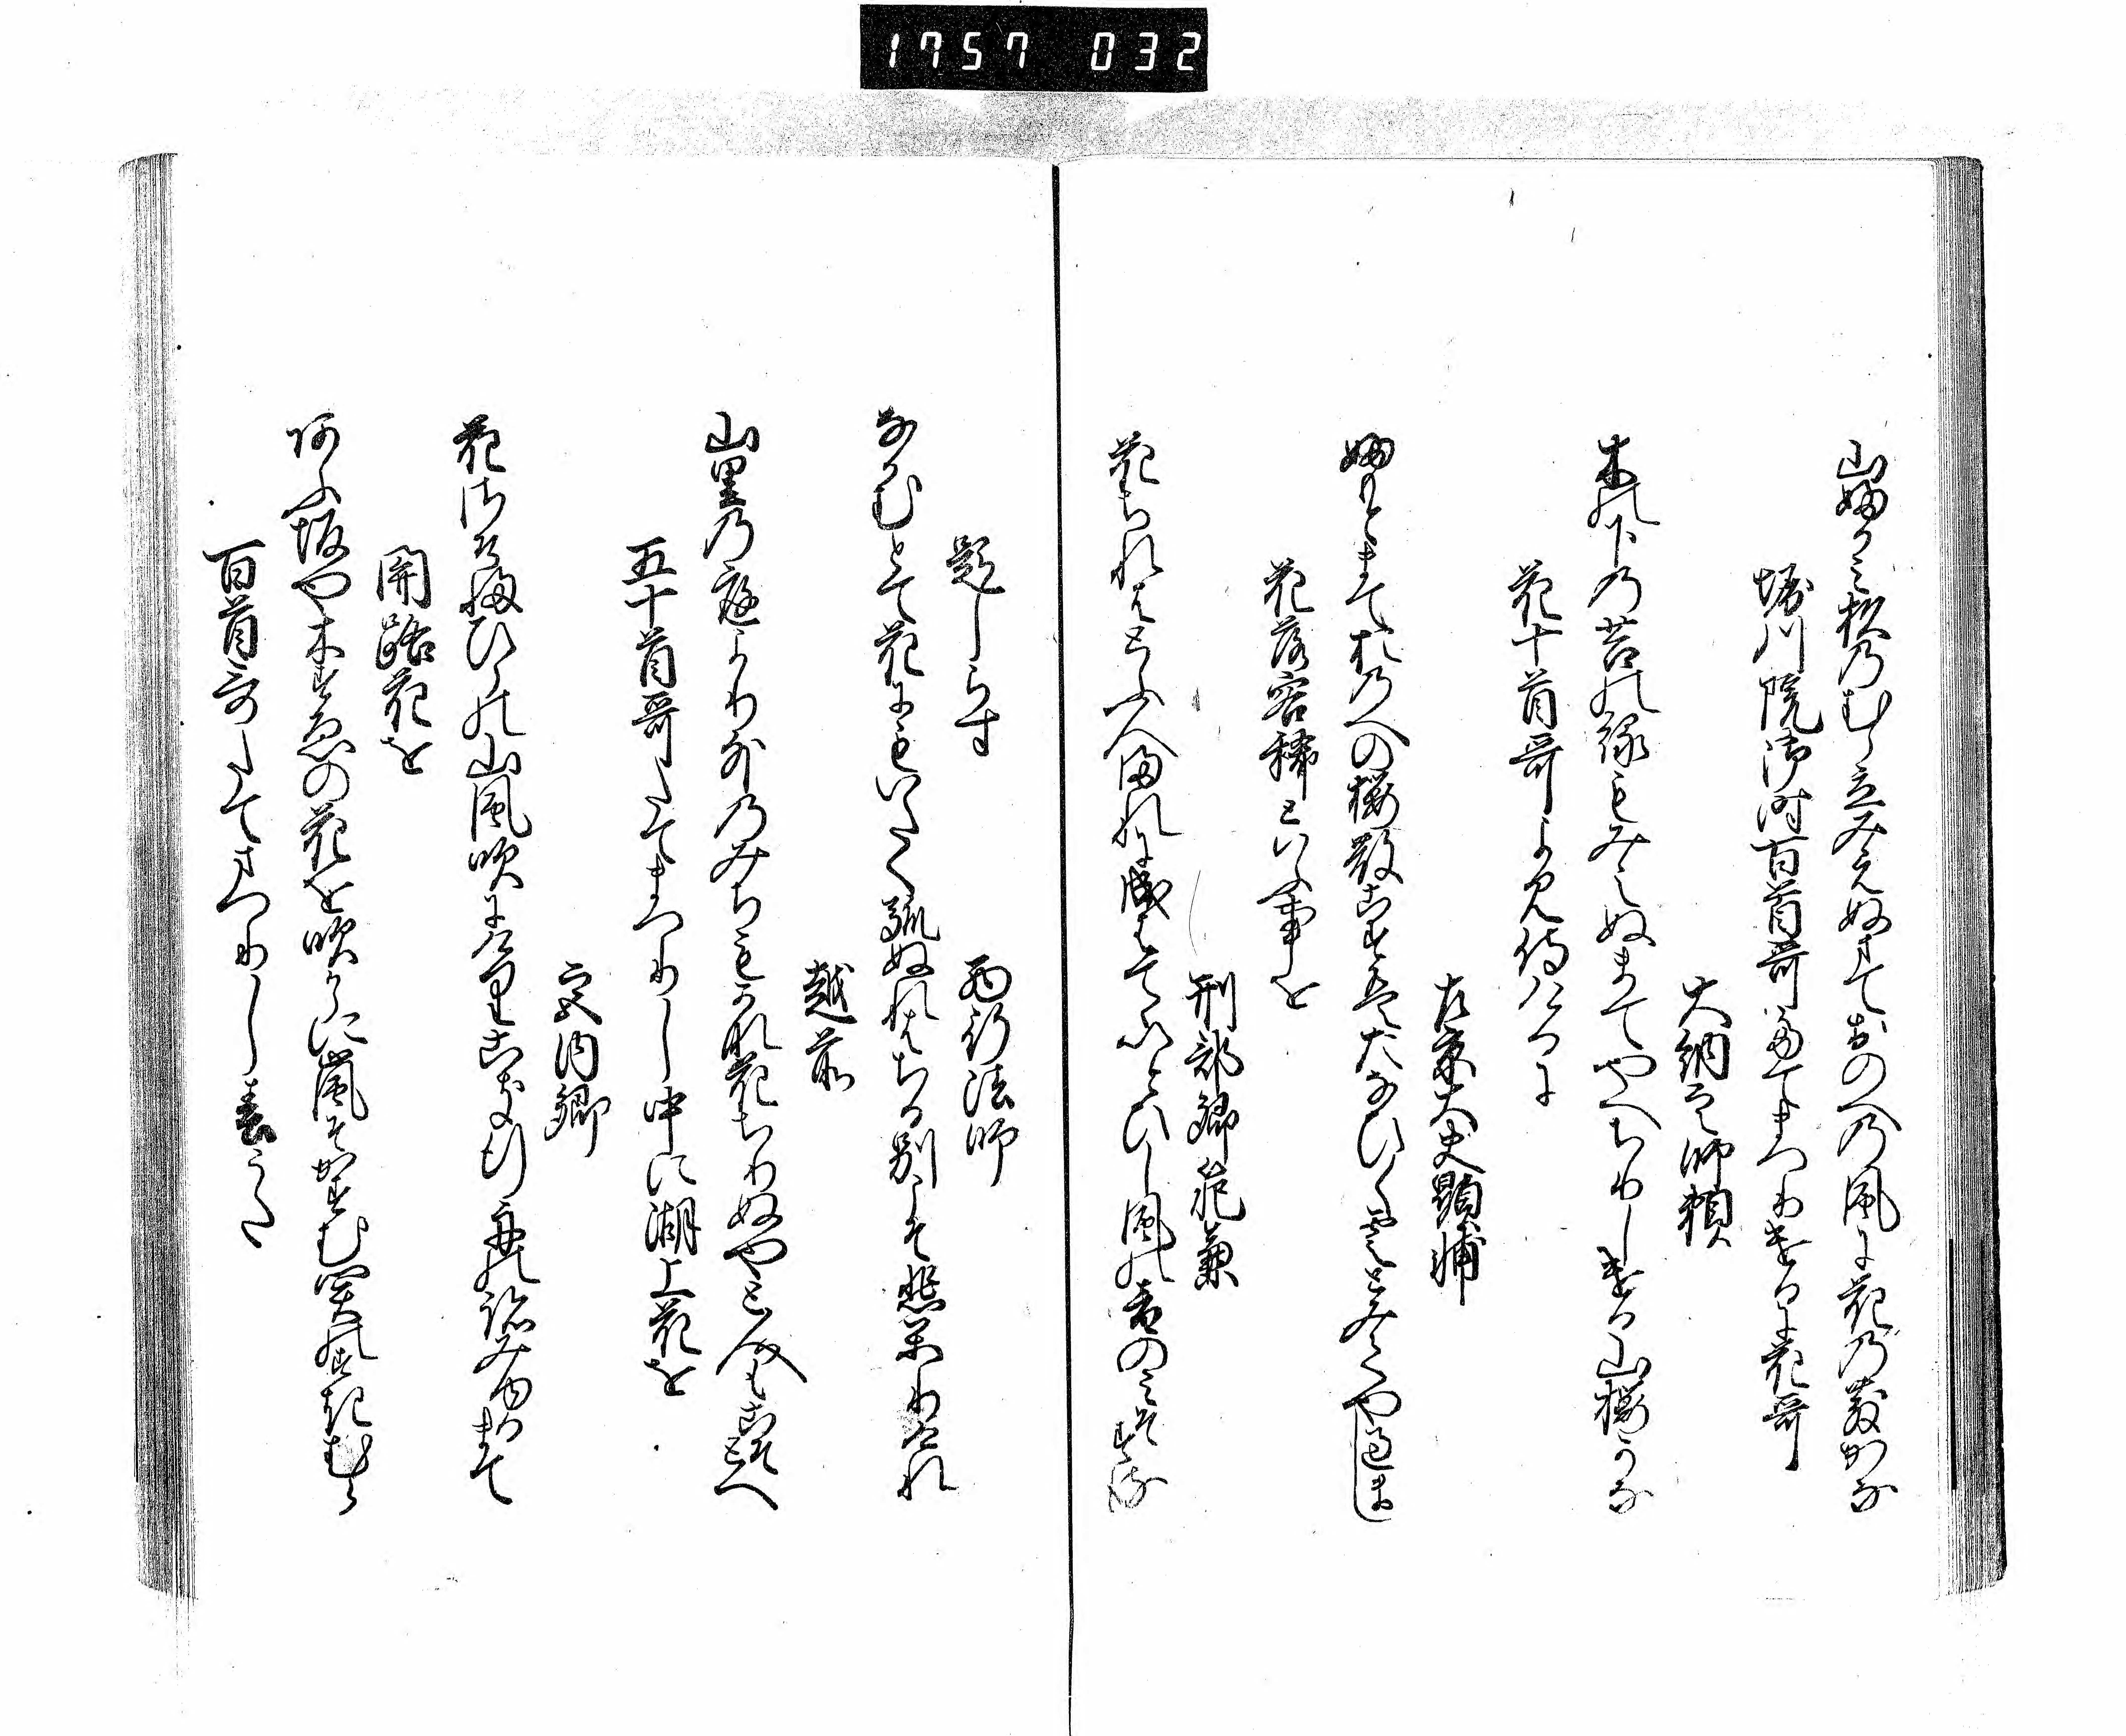 1757 032
山ふかみ杉のむら立みえぬまておのへの風に花の散かな
堀川院御時百首哥たてまつりけるに花哥
大納言師頼
木の下の苔の緑もみえぬまてやへちりしける山桜かな
花十首哥よみ侍けるに
左京大夫顕輔
ふもとまておのへの桜散こすはたなひく雲とみてや過まし
花落客稀といふ事を
刑部卿範兼
花ちれはとふ人まれに成はてゝいとひし風の音のみそする
題しらす
西行法師
なかむとて花にもいたく馴ぬれはちる別こそ悲しかりけれ
越前
山里の庭より外のみちもかな花ちりぬやと人もこそとへ
五十首哥たてまつりし中に湖上花を
宮内卿
花さそふひらの山風吹にけりこき行舟の跡みゆるまて
関路花を
あふ坂や木すゑの花を吹からに嵐そかすむ関の杉むら
百首哥たてまつりし春うた